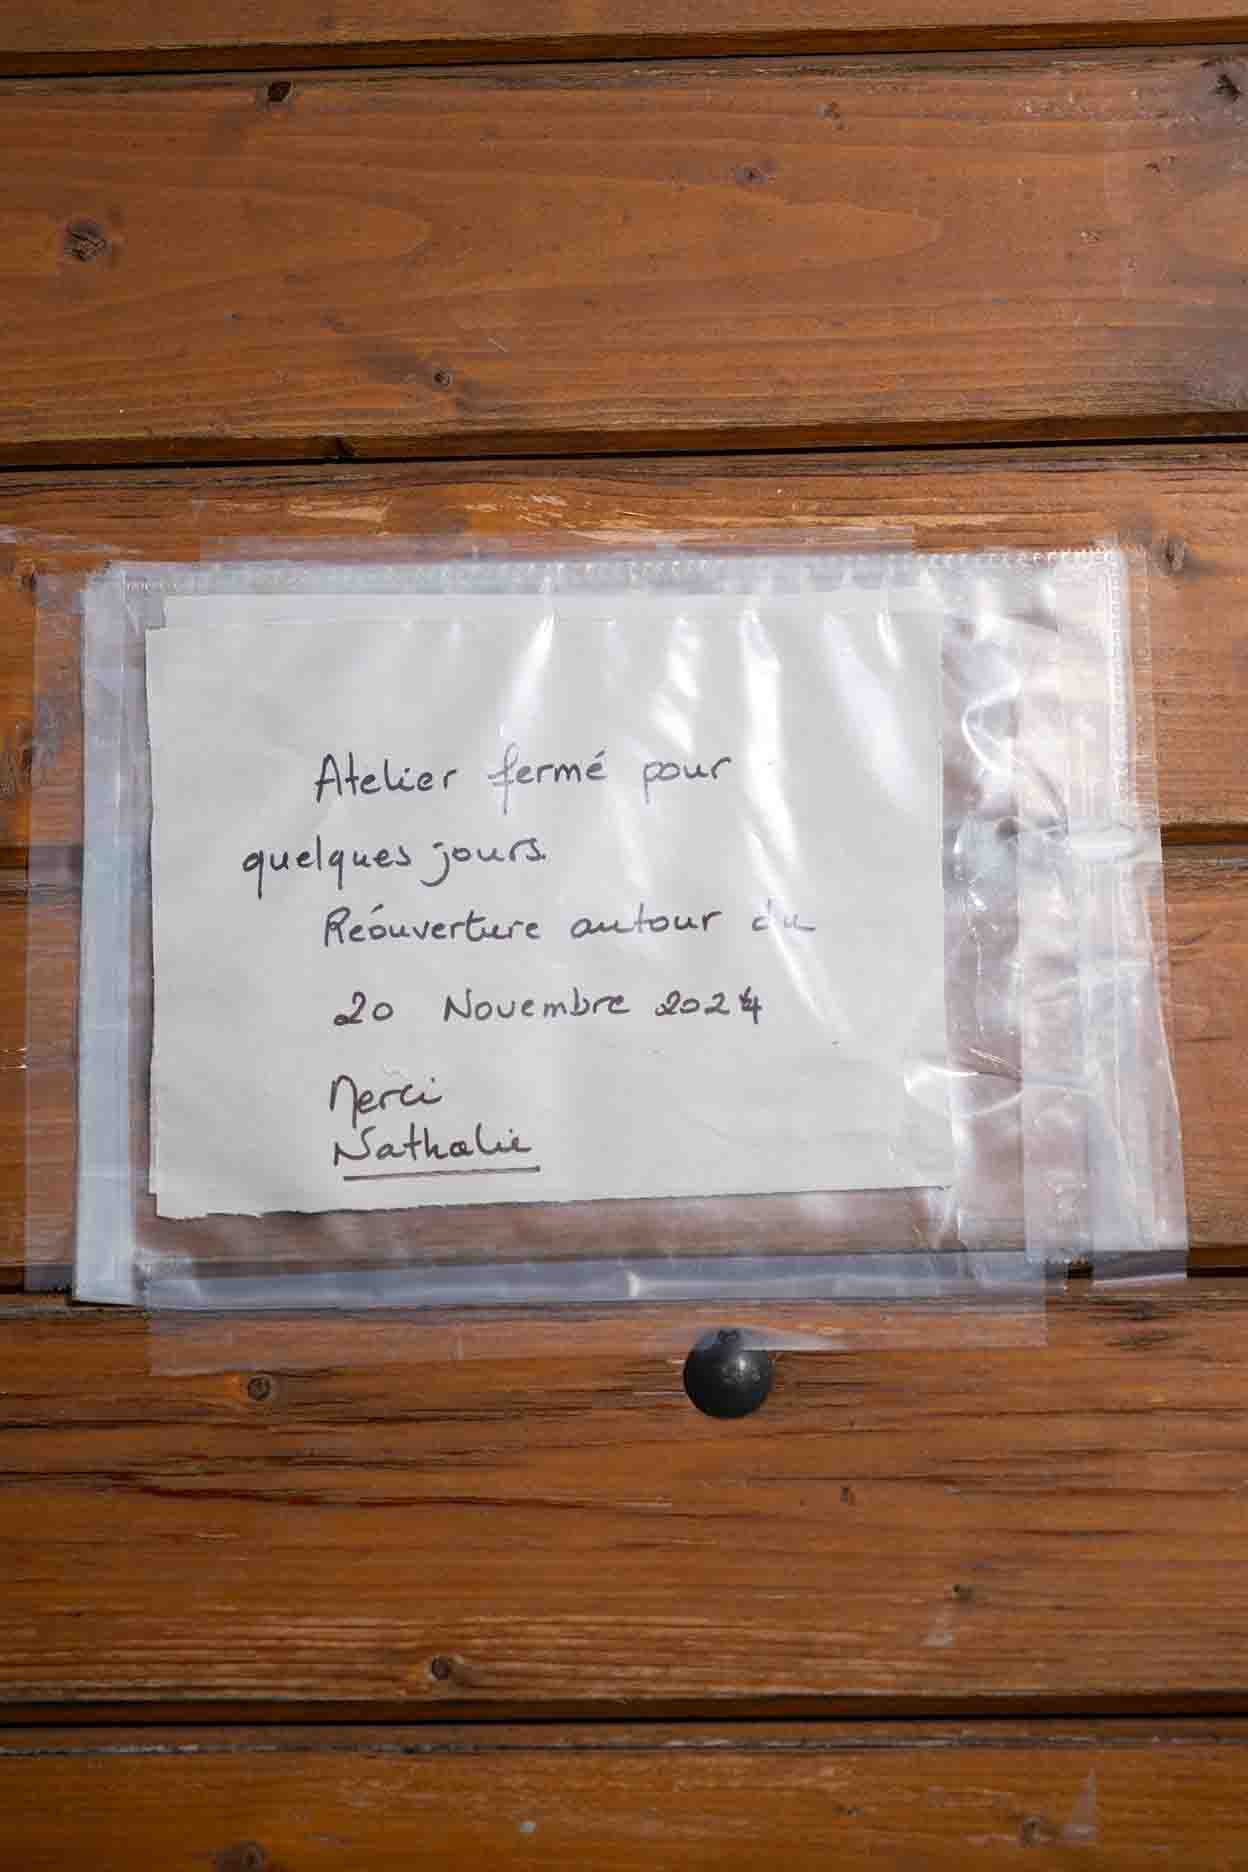 Atelier fermé pour
quelques jours.
Réouverture autour du
20 Novembre 2024
Merci
Nathalie